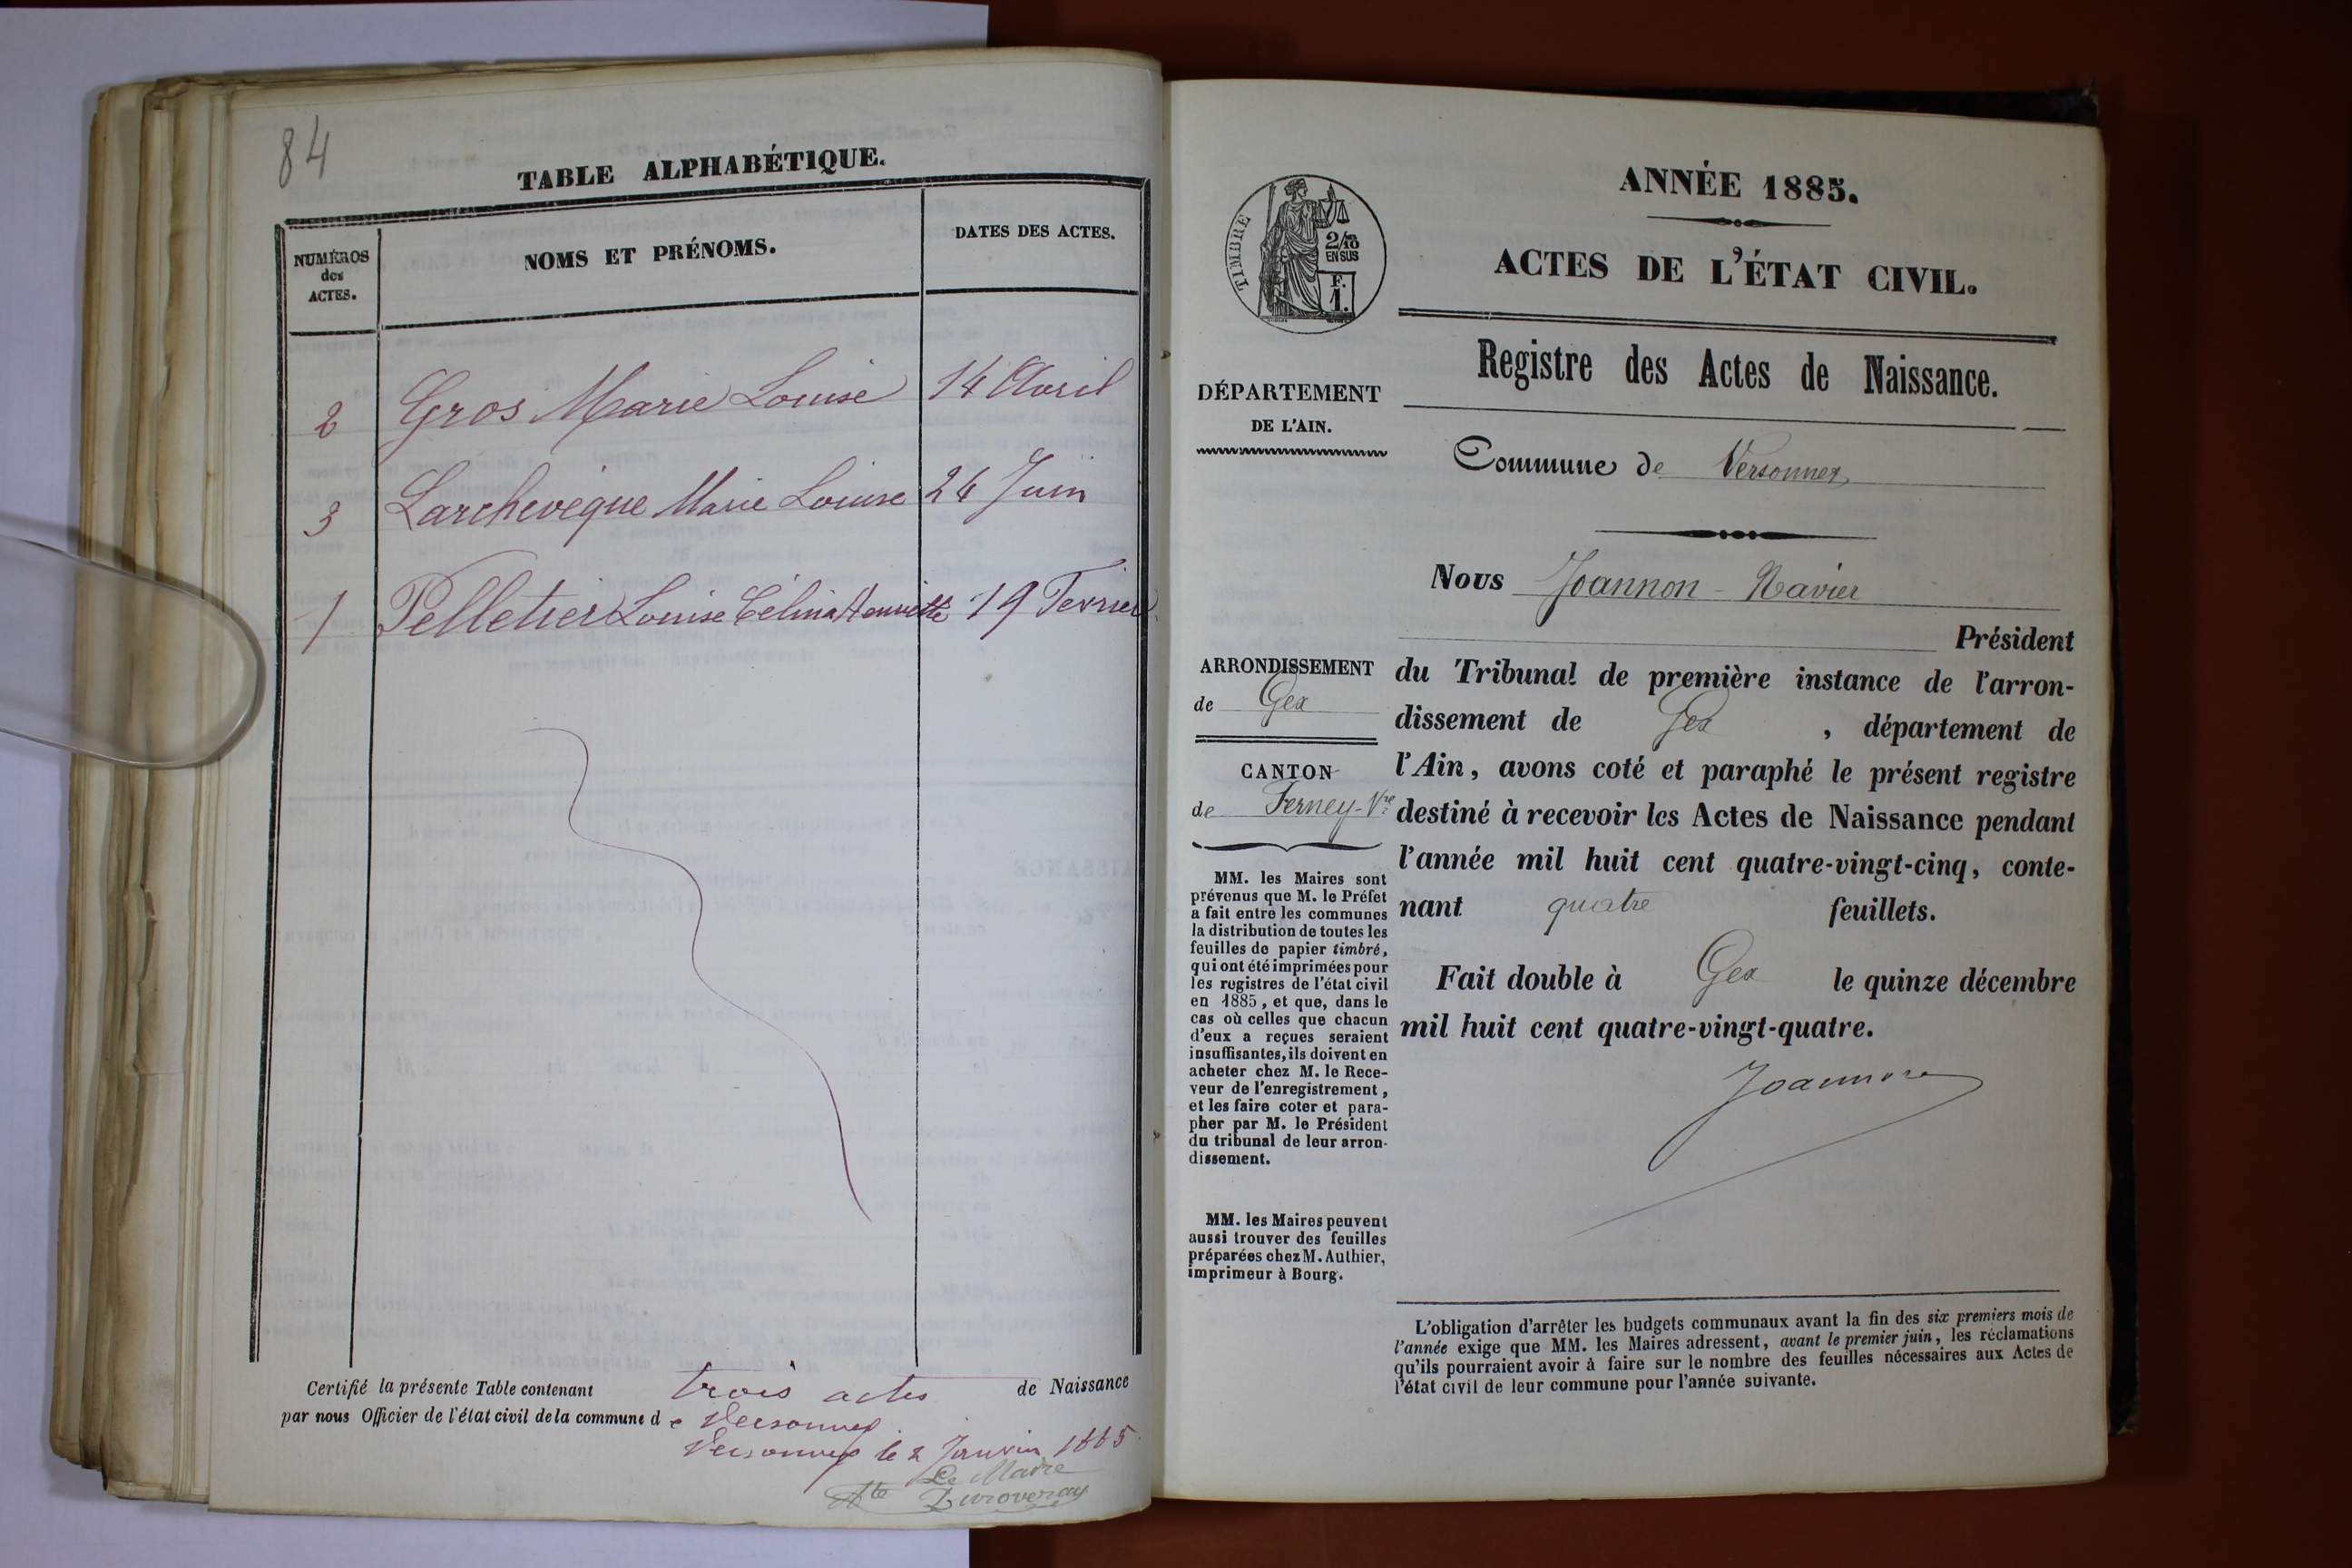 84
TABLE ALPHABÉTIQUE.
NUMÉROS
des
ACTES.
NOMS ET PRÉNOMS.
DATES DES ACTES.
2 Gros Marie Louise 14 Avril
3 Larchevêque Marie Louise 24 Juin
1 Pelletier Louise Célina Henriette 19 Fevrier
Certifié la présente Table contenant trois actes de Naissance
par nous Officier de l'état civil de la commune de Versonnex
Versonnex le 2 Janvier 1885
Le Maire
Duroveray
ANNÉE 1885.
ACTES DE L'ÉTAT CIVIL.
TIMBRE
2/10
EN SUS
F.
1.
Registre des Actes de Naissance.
DÉPARTEMENT
DE L'AIN.
Commune de Versonnex
ARRONDISSEMENT
de Gex
CANTON
de Ferney-Vre
MM. les Maires sont
prévenus que M. le Préfet
a fait entre les communes
la distribution de toutes les
feuilles de papier timbré,
qui ont été imprimées pour
les registres de l'état civil
en 1885, et que, dans le
cas où celles que chacun
d'eux a reçues seraient
insuffisantes, ils doivent en
acheter chez M. le Rece-
veur de l'enregistrement,
et les faire coter et para-
pher par M. le Président
du tribunal de leur arron-
dissement.
MM. les Maires peuvent
aussi trouver des feuilles
préparées chez M. Authier,
imprimeur à Bourg.
Nous Joannon-Navier
Président
du Tribunal de première instance de l'arron-
dissement de Gex, département de
l'Ain, avons coté et paraphé le présent registre
destiné à recevoir les Actes de Naissance pendant
l'année mil huit cent quatre-vingt-cinq, conte-
nant quatre feuillets.
Fait double à Gex le quinze décembre
mil huit cent quatre-vingt-quatre.
Joannon
L'obligation d'arrêter les budgets communaux avant la fin des six premiers mois de
l'année exige que MM. les Maires adressent, avant le premier juin, les réclamations
qu'ils pourraient avoir à faire sur le nombre des feuilles nécessaires aux Actes de
l'état civil de leur commune pour l'année suivante.